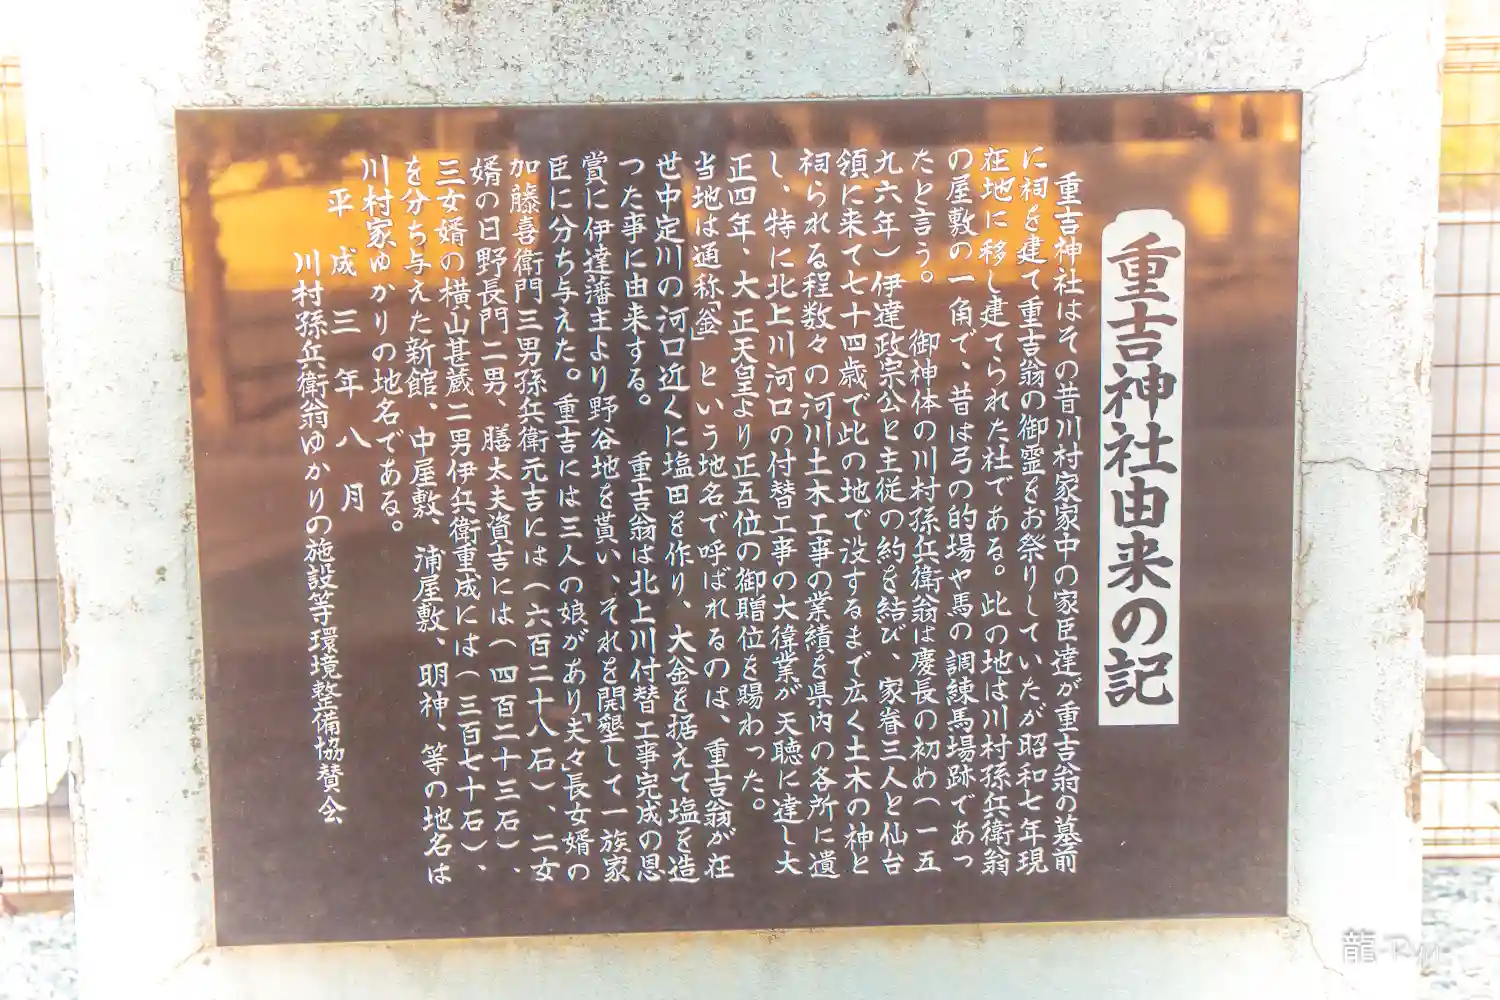 重吉神社由来の記
重吉神社はその昔川村家家中の家臣達が重吉翁の墓前
に祠を建て重吉翁の御霊をお祭りしていたが昭和七年現
在地に移し建てられた社である。此の地は川村孫兵衛翁
の屋敷の一角で、昔は弓の的場や馬の調練馬場跡であっ
たと言う。 御神体の川村孫兵衛翁は慶長の初め(一五
九六年)伊達政宗公と主従の約を結び、家眷三人と仙台
領に来て七十四歳で此の地で没するまで広く土木の神と
祠られる程数々の河川土木工事の業績を県内の各所に遺
し、特に北上川河口の付替工事の大偉業が天聴に達し大
正四年、大正天皇より正五位の御贈位を賜わった。
当地は通称「釜」という地名で呼ばれるのは、重吉翁が在
世中定川の河口近くに塩田を作り、大釜を据えて塩を造
つた事に由来する。 重吉翁は北上川付替工事完成の恩
賞に伊達藩主より野谷地を貰い、それを開墾して一族家
臣に分ち与えた。重吉には三人の娘があり「夫々」長女婿の
加藤喜衛門三男孫兵衛元吉には(六百二十八石)、二女
婿の日野長門二男、膳太夫資吉には(四百二十三石)、
三女婿の横山甚蔵二男伊兵衛重成には(三百七十石)、
を分ち与えた新館、中屋敷、浦屋敷、明神、等の地名は
川村家ゆかりの地名である。
平成三年八月
川村孫兵衛翁ゆかりの施設等環境整備協賛会
龍-Ryu-